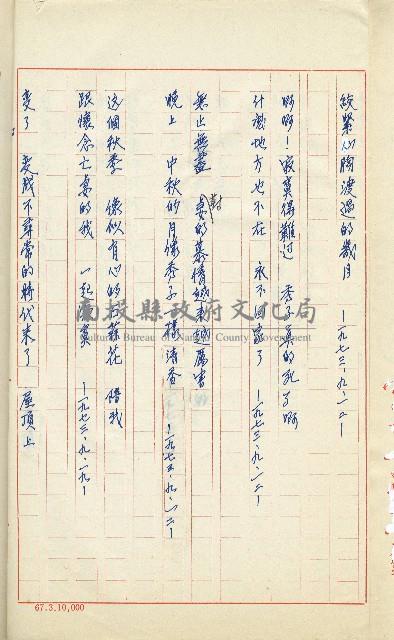 絞緊心胸渡過的歲月 —一九七三、九、一二—
啊啊!寂寞得難过 秀子真的死了啊
什麼地方也不在 永不回家了 —一九七三、九、一二—
無止無盡 對妻的慕情越来越厲害
晚上 中秋的月像秀子一樣清香 —一九七三、九、一二—
这個秋季 像似有心的蒜花 陪我
跟懷念亡妻的我 一起 —一九七三、九、一九—
变了 变成不尋常的時代来了 屋頂上
南投縣政府文化局
Cultural Bureau of Nantou County Government
67.3.10,000